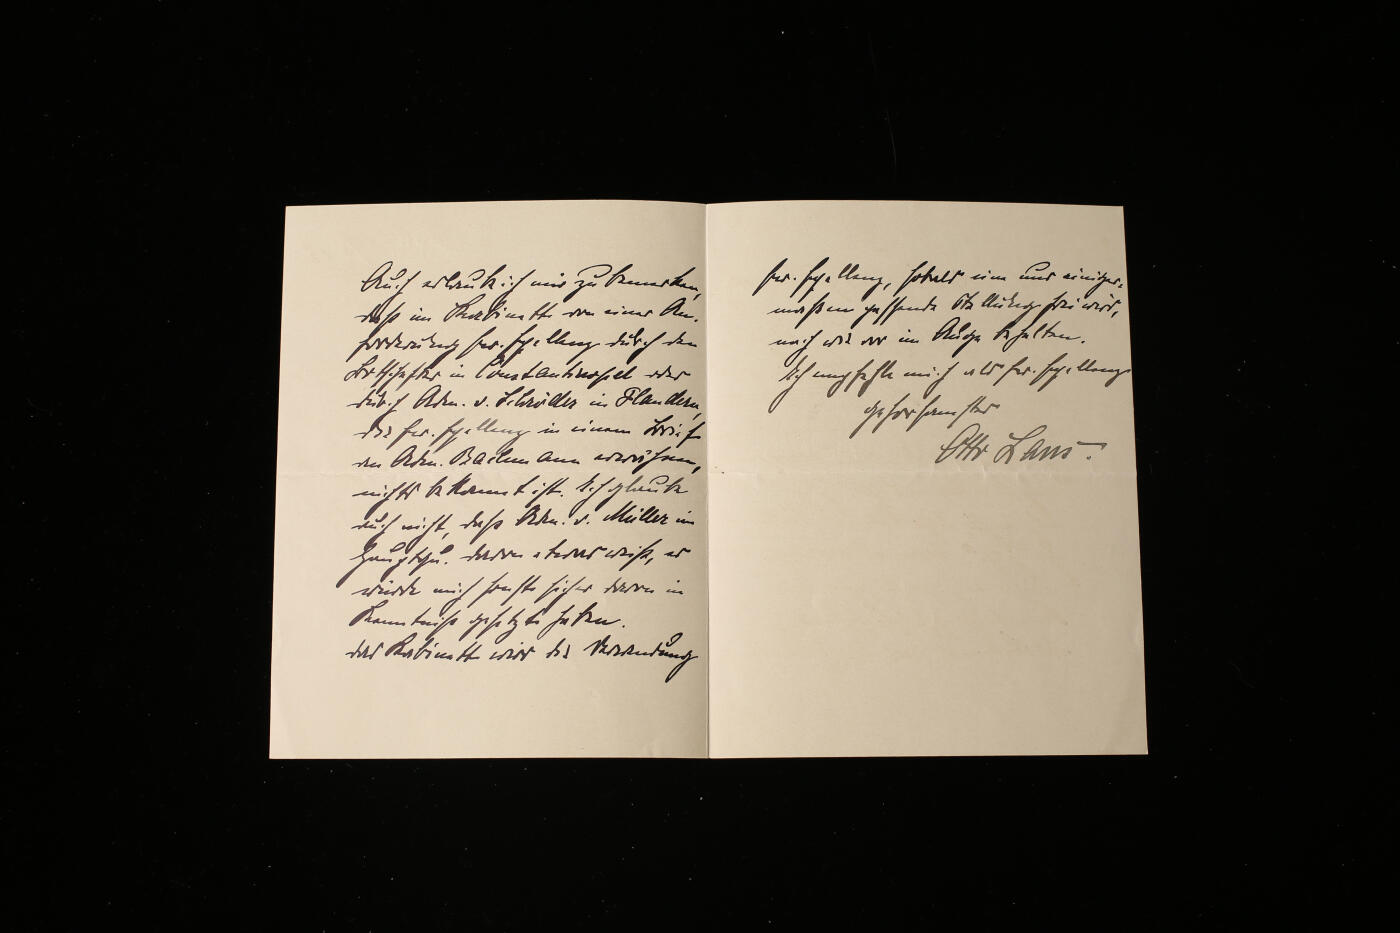 Auch erlaube ich mir zu bemerken,
daß im Kabinett von einer An-
forderung Ew. Exzellenz durch den
Botschafter in Constantinopel oder
durch Adm. v. Schröder in Flandern,
die Ew. Exzellenz in einem Brief
an Adm. Bachmann erwähnen,
nichts bekannt ist. Ich glaube
auch nicht, daß Adm. v. Müller im
Hauptqu. davon etwas weiß, er
würde mich sonst sicher davon in
Kenntniß gesetzt haben.
Das Kabinett wird die Verwendung
Ew. Exzellenz, sobald eine nur einiger-
maßen passende Stellung frei wird,
nach wie vor im Auge behalten.
Ich empfehle mich als Ew. Exzellenz
gehorsamster
Otto Lans.